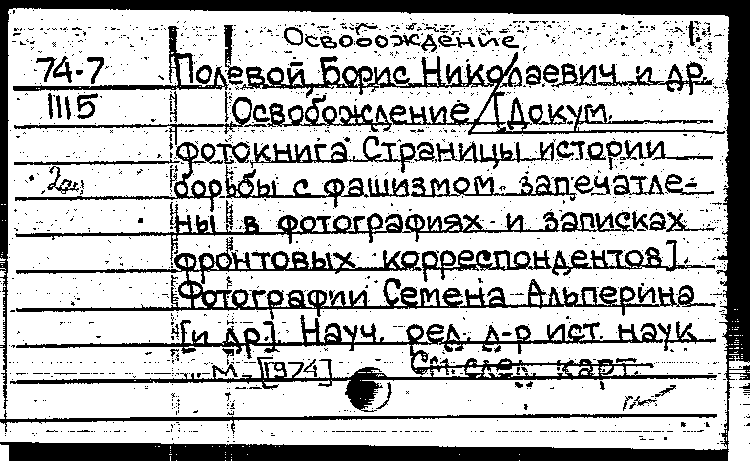 Освобождение
74-7 Полевой, Борис Николаевич и др.
1115 Освобождение / [Докум.
фотокнига. Страницы истории
борьбы с фашизмом запечатле-
ны в фотографиях и записках
фронтовых корреспондентов].
Фотографии Семена Альперина
[и др]. Науч. ред. д-р ист. наук
... М. [1974] См. след. карт.